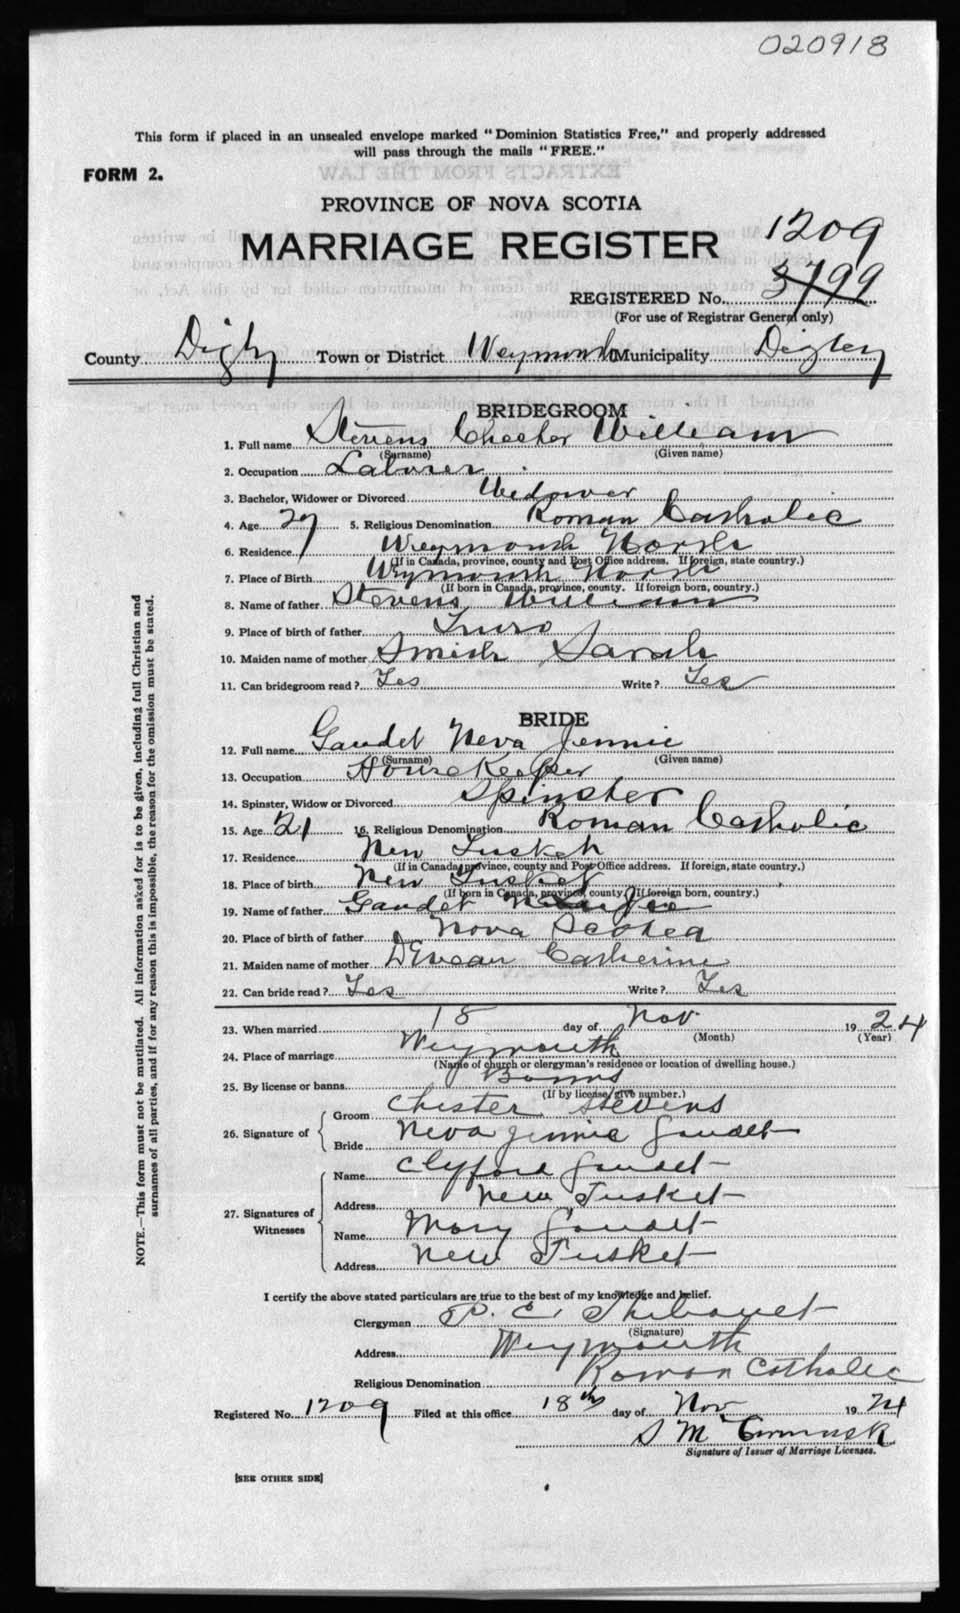 020918
This form if placed in an unsealed envelope marked "Dominion Statistics Free," and properly addressed
will pass through the mails "FREE."
FORM 2.
PROVINCE OF NOVA SCOTIA
MARRIAGE REGISTER
1209
REGISTERED No. 3799
(For use of Registrar General only)
County Digby Town or District Weymouth Municipality Digby
BRIDEGROOM
1. Full name Stevens Chester William
(Surname) (Given name)
2. Occupation Laborer
3. Bachelor, Widower or Divorced Widower
4. Age 27 5. Religious Denomination Roman Catholic
6. Residence Weymouth North
(If in Canada, province, county and Post Office address. If foreign, state country.)
7. Place of Birth Weymouth North
(If born in Canada, province, county. If foreign born, country.)
8. Name of father Stevens William
9. Place of birth of father Truro
10. Maiden name of mother Smith Sarah
11. Can bridegroom read? Yes Write? Yes
BRIDE
12. Full name Gaudet Neva Jennie
(Surname) (Given name)
13. Occupation HouseKeeper
14. Spinster, Widow or Divorced Spinster
15. Age 21 16. Religious Denomination Roman Catholic
17. Residence New Tusket
(If in Canada, province, county and Post Office address. If foreign, state country.)
18. Place of birth New Tusket
(If born in Canada, province, county. If foreign born, country.)
19. Name of father Gaudet
20. Place of birth of father Nova Scotia
21. Maiden name of mother DEveau Catherine
22. Can bride read? Yes Write? Yes
23. When married 18 day of Nov 1924
(Month) (Year)
24. Place of marriage Weymouth
(Name of church or clergyman's residence or location of dwelling house.)
25. By license or banns Banns
(If by license, give number.)
26. Signature of Groom Chester Stevens
Bride Neva Jennie Gaudet
27. Signatures of Witnesses Name Clyfford Gaudet
Address New Tusket
Name Mary Gaudet
Address New Tusket
I certify the above stated particulars are true to the best of my knowledge and belief.
Clergyman P. E. Thibault
(Signature)
Address Weymouth
Religious Denomination Roman Catholic
Registered No. 1209 Filed at this office 18th day of Nov 1924
S Mc
Signature of Issuer of Marriage Licenses.
[SEE OTHER SIDE]
NOTE.—This form must not be mutilated. All information asked for is to be given, including full Christian and
surnames of all parties, and if for any reason this is impossible, the reason for the omission must be stated.